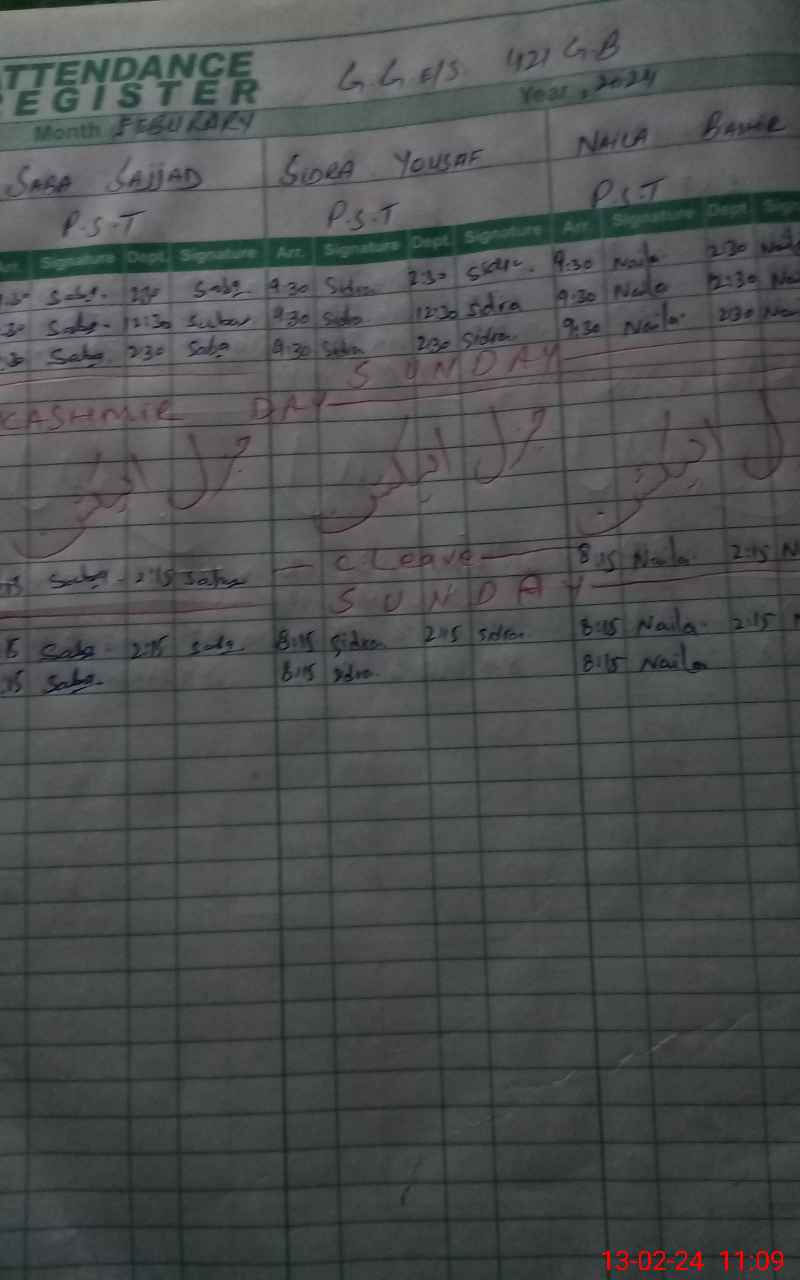 ATTENDANCE G.G.E/S 421 G.B
REGISTER Year, 2024
Month FEBURARY
SABA SAJJAD SIDRA YOUSAF NAILA
P.S.T P.S.T P.S.T
Arr. Signature Dept. Signature Arr. Signature Dept. Signature Arr. Signature Dept. Signature
:30 Saba 2:30 Saba 9:30 Sidra 2:30 Sidra 9:30 Naila 2:30 Naila
:30 Saba 12:30 Saba 9:30 Sidra 12:30 Sidra 9:30 Naila 12:30 Na
:30 Saba 2:30 Saba 9:30 Sidra 2:30 Sidra 9:30 Naila 2:30 Na
SUNDAY
KASHMIR DAY
جنرل الیکشن جنرل الیکشن الیکشن
:15 Saba 2:15 Saba C.Leave 8:15 Naila 2:15 N
SUNDAY
15 Saba 2:15 Saba 8:15 Sidra 2:15 Sidra 8:15 Naila 2:15 N
:15 Saba 8:15 Sidra 8:15 Naila
13-02-24 11:09